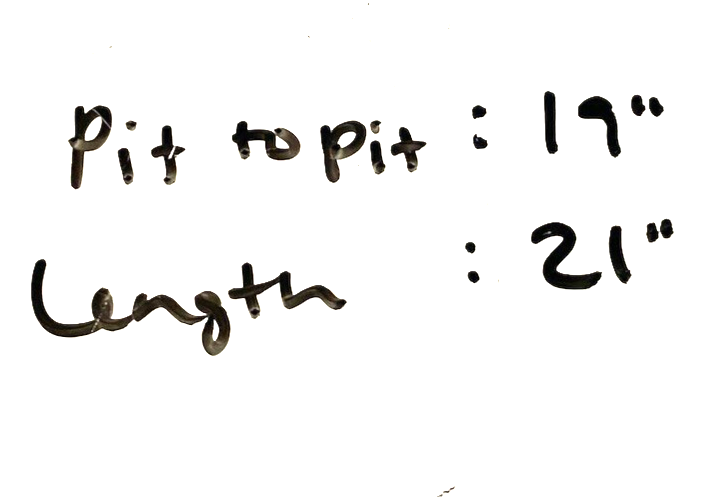 Pit to pit : 19"
Length : 21"